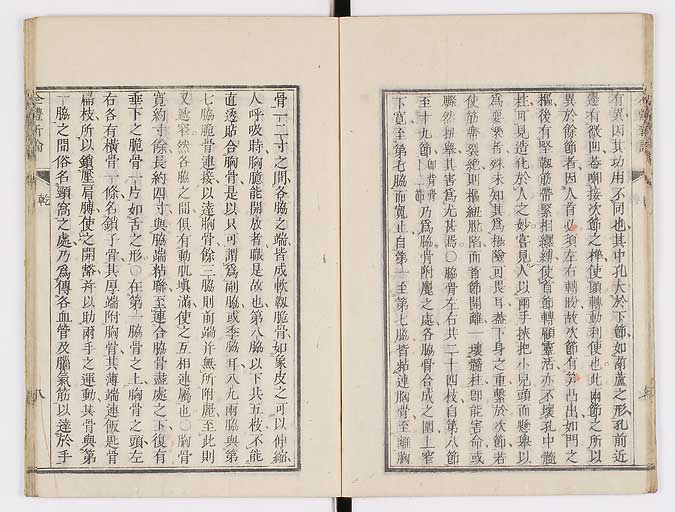 有異因其功用不同也其中孔大於下節如葫蘆之形孔前近
邊有微凹恭朝接次節之榫使頭轉動利便也此兩節之所以
異於餘節者因人首必須左右轉眣故次節有笋凸出如門之
樞後有堅靱筋帶緊相纏縛使首節轉顧靈活亦不壞孔中髓
柱可見造化於人之妙嘗見人以兩手挾把小兒頭而懸舉以
為耍樂者殊未知其為極險可畏耳蓋下身之重繫於次節若
使筋帶裂絕則樞紐脫陷而首節開離一壞髓柱即能害命或
驟然扭舉其害為尤甚焉〇脇骨左右共二十四枝自第八節
至十九節即背骨十二節乃為脇骨附麗之處各脇骨合成之圍上窄
下寬至第七脇而寬止自第一至第七脇皆粘連胸骨至離胸
骨一二寸之間各脇之端皆成軟靱脆骨如象皮之可以伸縮
人呼吸時胸膛能開放者職是故也第八脇以下共五枝不能
直透貼合胸骨是以只可謂為副脇或季脇耳八九兩脇與第
七脇脆骨連接以達胸骨餘三脇則前端并無所附麗至此則
又透窄然各脇之間俱有動肌填滿使之互相連屬也〇胸骨
寬約寸餘長約四寸與脇端粘聯至連合脇骨盡處之下復有
垂下之脆骨一片如舌之形〇在第一脇骨之上胸骨之頭左
右各有橫骨一條名鎖子骨其厚端附胸骨其薄端連飯匙骨
扁枝所以鎖壓肩膊使之開豁并以助兩手之運動其骨與第
一脇之間俗名頸窩之處乃為傳各血管及腦氣筋以達於手
全體新論
乾
八